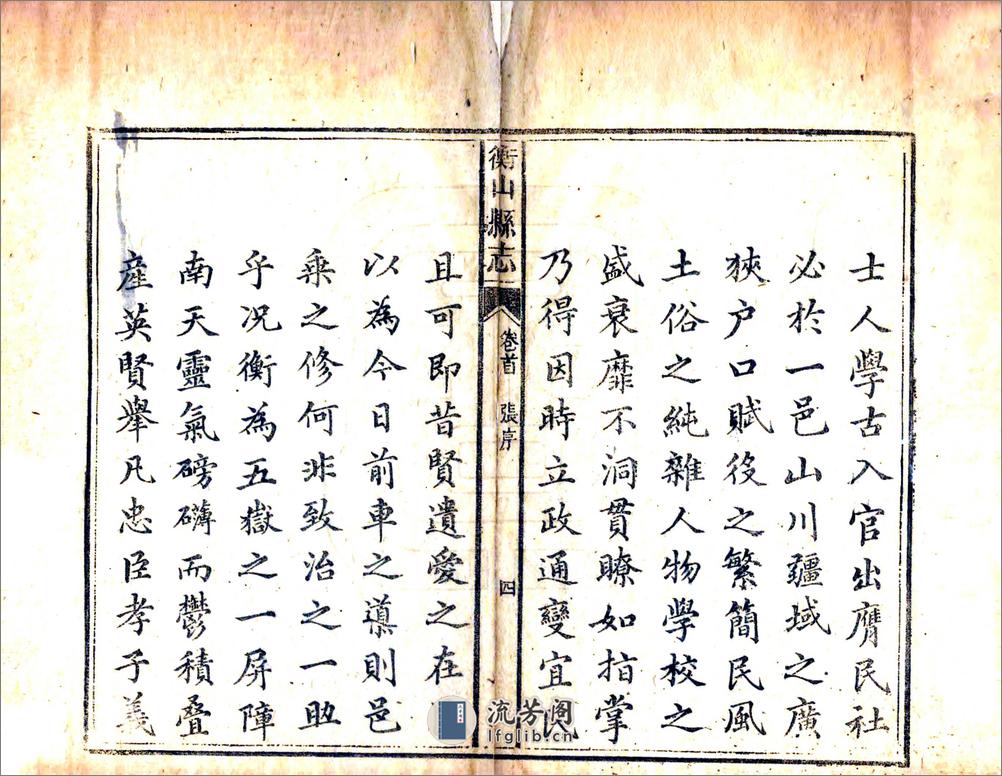 士人學古入官出膺民社
必於一邑山川疆域之廣
狹户口賦役之繁簡民風
土俗之純雜人物學校之
盛衰靡不洞貫瞭如指掌
乃得因時立政通變宜民
衡山縣志
卷首
張序
四
且可即昔賢遺愛之在
以為今日前車之導則邑
乗之修何非致治之一助
乎况衡為五嶽之一屏障
南天靈氣磅礴而鬱積叠
産英賢舉凡忠臣孝子義
流芳阁
lfglib.cn